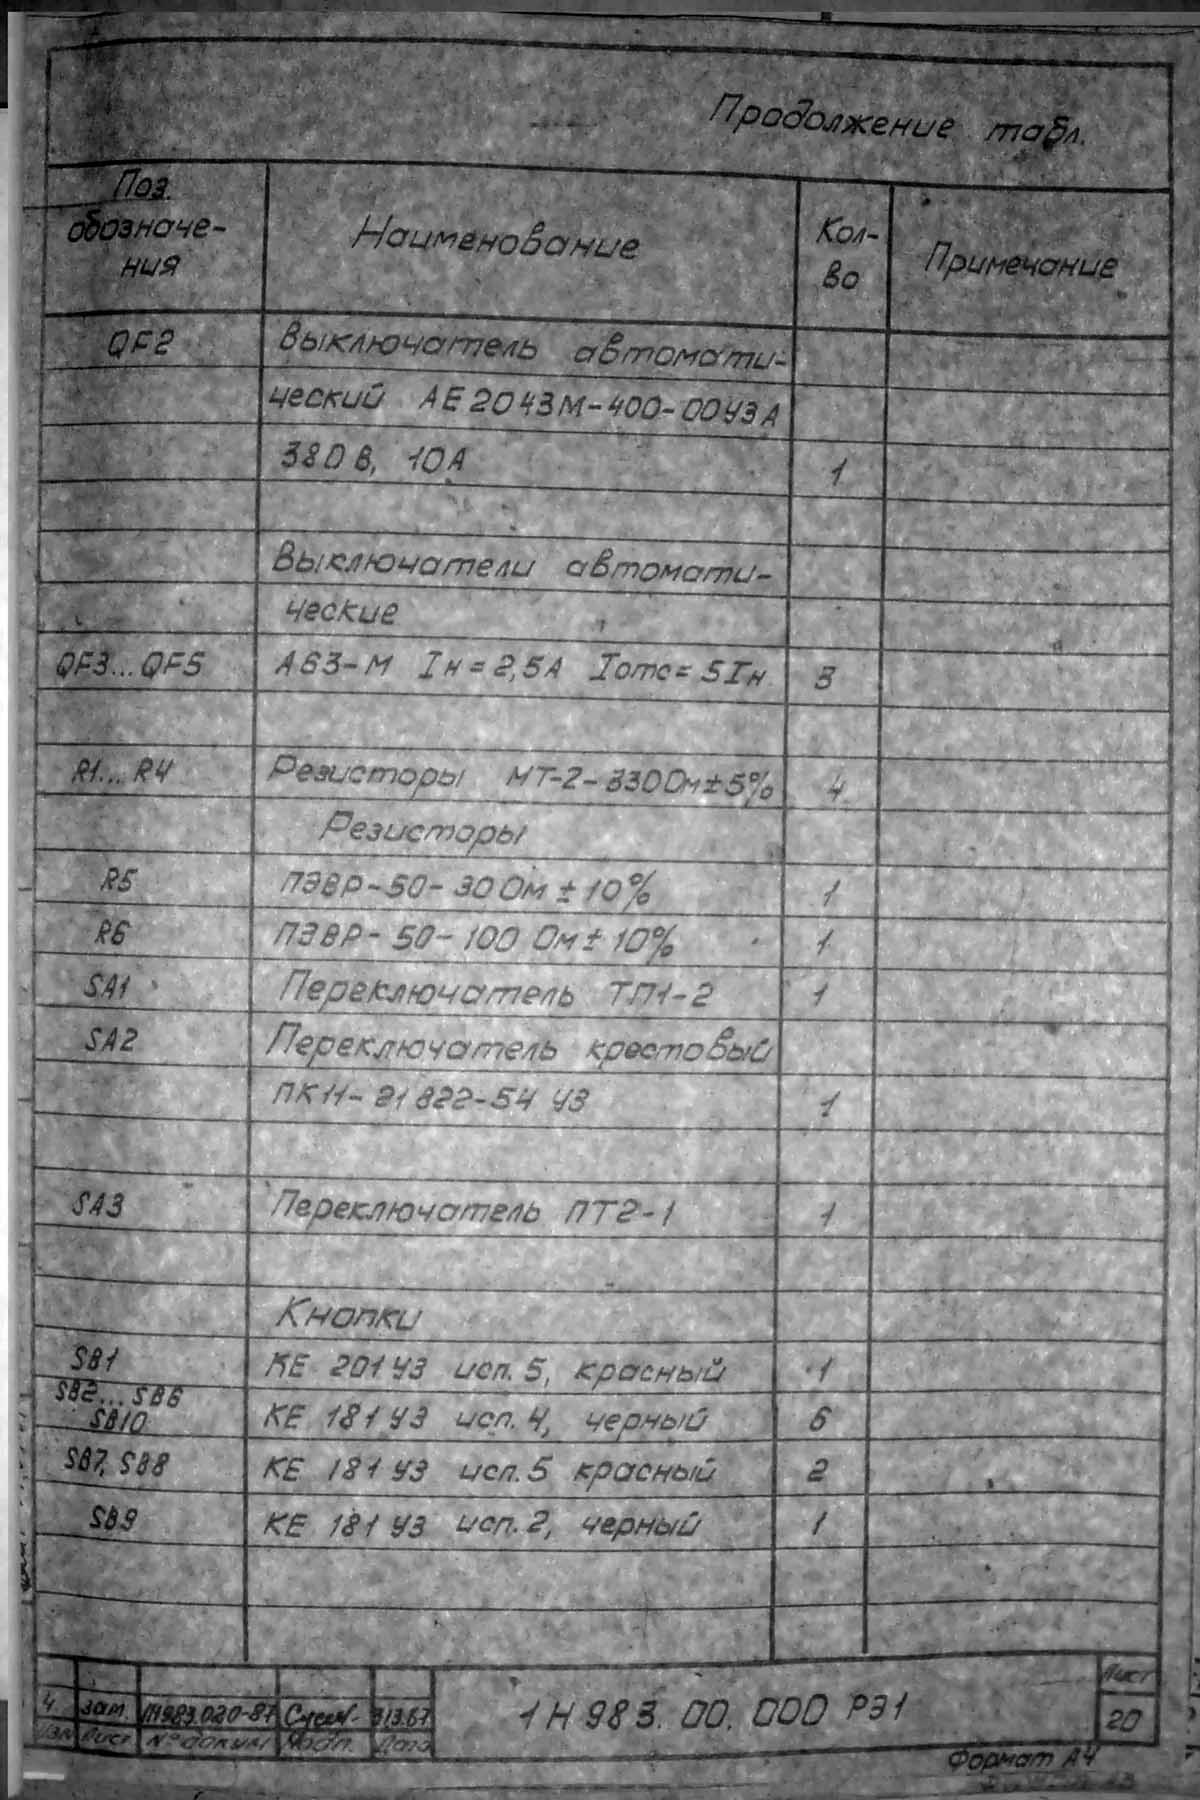 Продолжение табл.
Поз.
обозначе-
ния
Наименование
Кол-
во
Примечание
QF2 Выключатель автомати-
ческий АЕ2043М-400-00У3А
380В, 10А 1
Выключатели автомати-
ческие
QF3...QF5 А63-М Iн=2,5А Iотс=5Iн 3
R1...R4 Резисторы МТ-2-330Ом±5% 4
Резисторы
R5 ПЭВР-50-30Ом±10% 1
R6 ПЭВР-50-100 Ом±10% 1
SA1 Переключатель ТП1-2 1
SA2 Переключатель крестовый
ПК11-21822-54 У3 1
SA3 Переключатель ПТ2-1 1
Кнопки
SB1 КЕ 201У3 исп.5, красный 1
SB2...SB6
SB10 КЕ 181У3 исп.4, черный 6
SB7, SB8 КЕ 181У3 исп.5 красный 2
SB9 КЕ 181У3 исп.2, черный 1
4 зам. 1Н983.020-87
Изм Лист № докум. Подп. Дата
1Н983.00.000 РЭ1
Лист
20
Формат А4